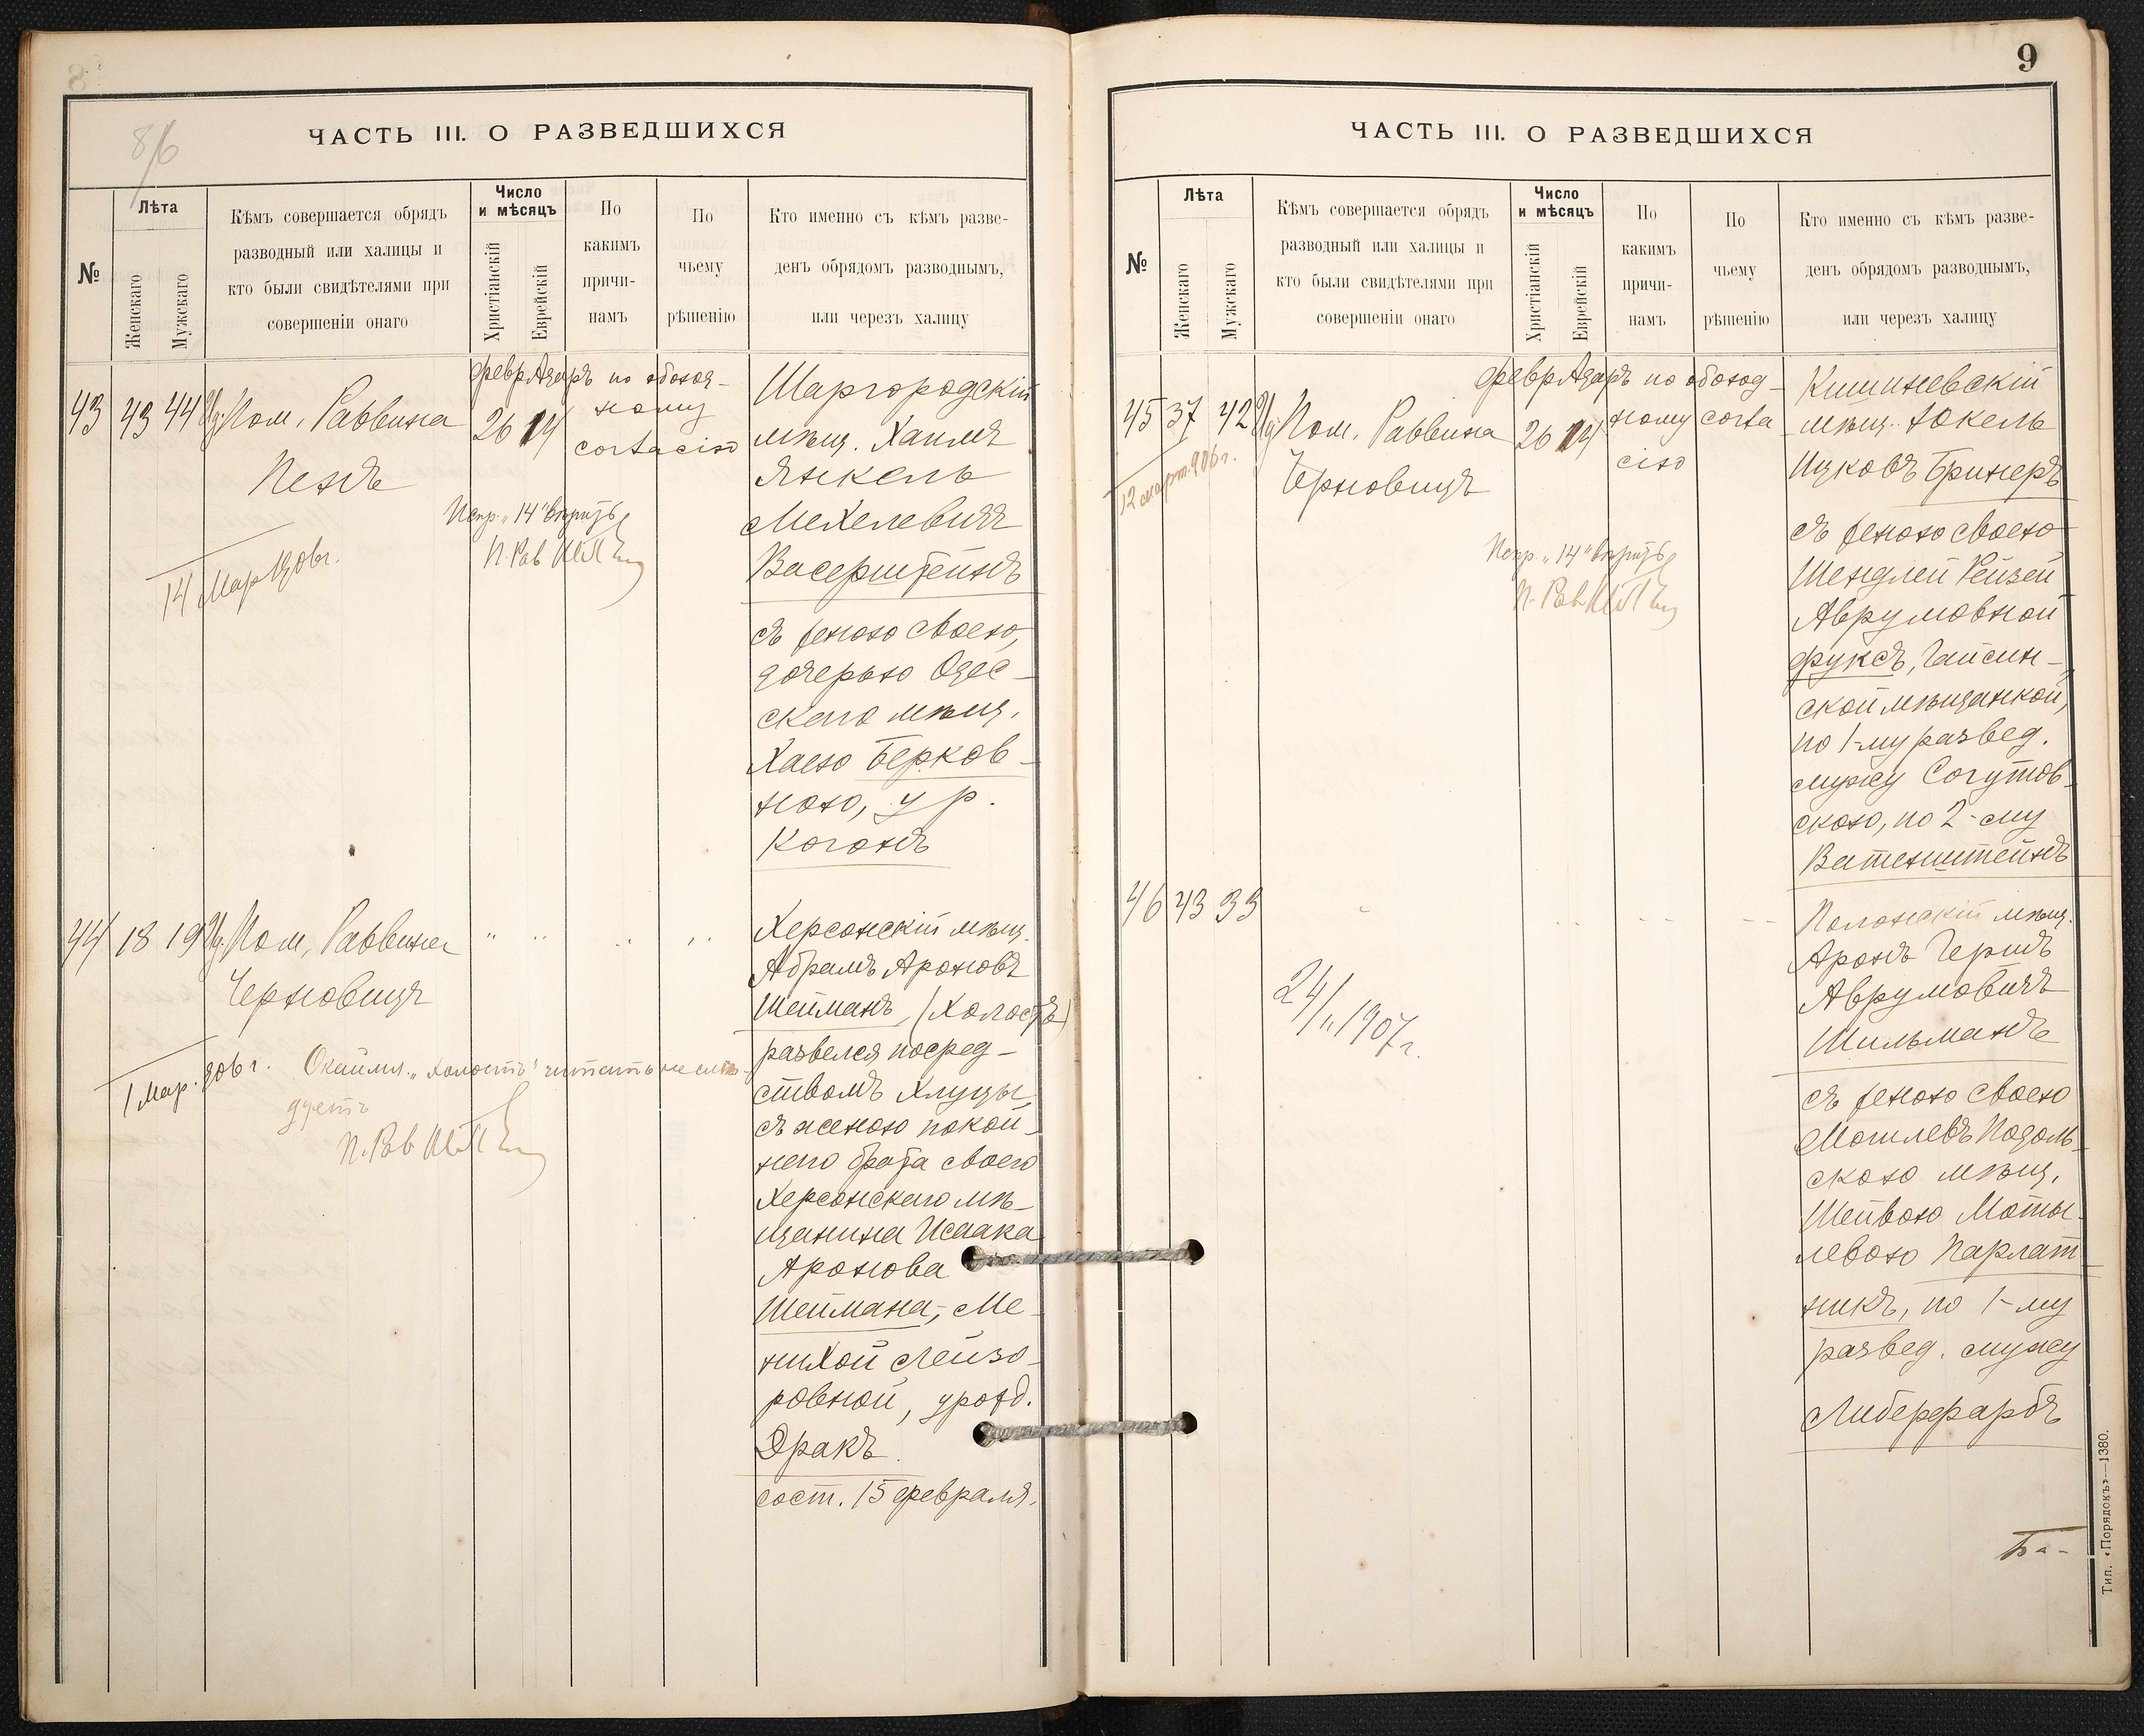 8/6
ЧАСТЬ III. О РАЗВЕДШИХСЯ
№
Лѣта
Женскаго
Мужскаго
Кѣмъ совершается обрядъ
разводный или халицы и
кто были свидѣтелями при
совершеніи онаго
Число
и мѣсяцъ
Христіанскій
Еврейскій
По
какимъ
причи-
намъ
По
чьему
рѣшенію
Кто именно съ кѣмъ разве-
денъ обрядомъ разводнымъ,
или черезъ халицу
43 43 44
Пом. Раввина
Пенъ
14 Мар 1906г.
февр Адаръ
26 14
Испр. „14" вѣрить
П. Рав
по обоюд-
ному
согласію
Шаргородскій
мѣщ. Хаимъ
Янкель
Мехелевичъ
Васерштейнъ
съ женою своею,
дочерью Одес-
скаго мѣщ.
Хаею Берков-
ною, ур.
Коганъ
44 18 19
Пом. Раввина
Черновицъ
" " " "
1 Мар. 906 г.
Окаймл. „холостъ" читать не слѣ-
дуетъ
П. Рав
Херсонскій мѣщ.
Абрамъ Ароновъ
Шейманъ, (холостъ)
развелся посред-
ствомъ Хлуцы
съ женою покой-
наго брата своего
Херсонскаго мѣ-
щанина Исаака
Аронова
Шеймана, Ме-
нихой Лейзо-
ровной, урожд.
Дракъ.
сост. 15 февраля.
9
ЧАСТЬ III. О РАЗВЕДШИХСЯ
№
Лѣта
Женскаго
Мужскаго
Кѣмъ совершается обрядъ
разводный или халицы и
кто были свидѣтелями при
совершеніи онаго
Число
и мѣсяцъ
Христіанскій
Еврейскій
По
какимъ
причи-
намъ
По
чьему
рѣшенію
Кто именно съ кѣмъ разве-
денъ обрядомъ разводнымъ,
или черезъ халицу
45 37 42
12 март. 906г.
Пом. Раввина
Черновицъ
февр Адаръ
26 14
Испр. „14" вѣрить
П. Рав
по обоюд-
ному согла
сію
Кишиневскій
мѣщ. Іокель
Ицковъ Бринеръ
съ женою своею
Шендлей Рейзей
Аврумовной
Фуксъ, Гайсин-
ской мѣщанкой,
по 1-му развед.
мужу Согутов-
скою, по 2-му
Ватенштейнъ
46 43 33
24/II 1907 г.
Полонскій мѣщ.
Аронъ Гершъ
Аврумовичъ
Шильманъ
съ женою своею
Могилевъ Подоль-
скою мѣщ.
Шейвою Моты-
левою Парлат
никъ, по 1-му
развед. мужу
Либерфарбъ
Тип. «Порядокъ»—1380.